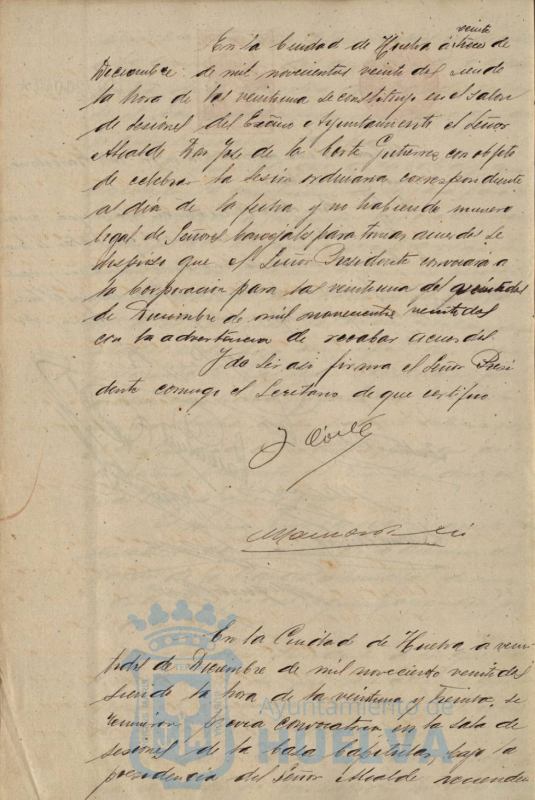 veinte
En la Ciudad de Huelva á trece de
Diciembre de mil novecientos veinte dos siendo
la hora de las veintiuna se constituyo en el Salon
de sesiones del Excmo Ayuntamiento el Señor
Alcalde Don José de la Corte Gutierrez con objeto
de celebrar la sesión ordinaria correspondiente
al dia de la fecha y no habiendo numero
legal de Señores Concejales para tomar acuerdos se
dispuso que el Señor Presidente convocara a
la Corporacion para las veintiuna del veintidos
de Diciembre de mil novecientos veintidos
con la advertencia de recabar acuerdos
Y de ser asi firma el Señor Presi
dente conmigo el Secretario de que certifico
J Corte
En la Ciudad de Huelva á vein-
tidos de Diciembre de mil novecientos veintidos
siendo la hora de la veintiuna y treinta, se
reunieron previa convocatoria en la sala de
sesiones de la Casa Capitular, bajo la
presidencia del Señor Alcalde
Ayuntamiento de
HUELVA